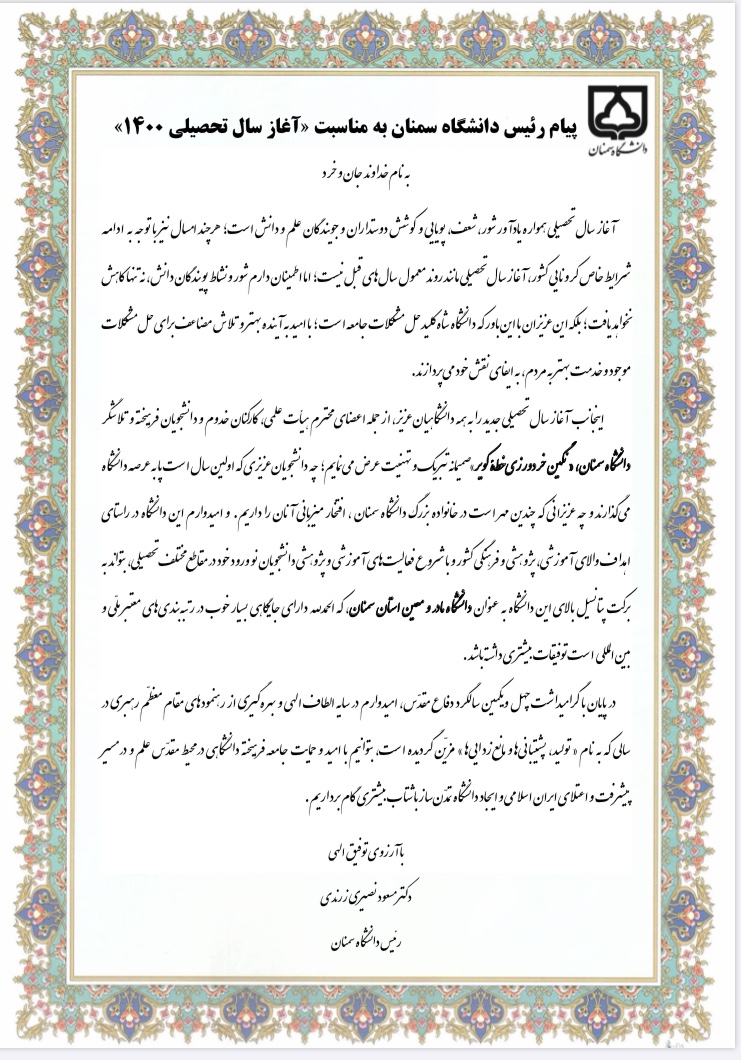 پیام رئیس دانشگاه سمنان به مناسبت «آغاز سال تحصیلی ۱۴۰۰»
دانشگاه سمنان
به نام خداوند جان و خرد
آغاز سال تحصیلی همواره یادآور شور، شعف، پویایی و کوشش دوستداران و جویندگان علم و دانش است؛ هرچند امسال نیز با توجه به ادامه
شرایط خاص کرونایی کشور، آغاز سال تحصیلی مانند روند معمول سال های قبل نیست؛ اما اطمینان دارم شور و نشاط پویندگان دانش، نه تنها کاهش
نخواهد یافت؛ بلکه این عزیزان با این باور که دانشگاه شاه کلید حل مشکلات جامعه است؛ با امید به آینده بهتر و تلاش مضاعف برای حل مشکلات
موجود و خدمت بهتر به مردم، به ایفای نقش خود می پردازند.
اینجانب آغاز سال تحصیلی جدید را به همه دانشگاهیان عزیز، از جمله اعضای محترم هیأت علمی، کارکنان خدوم و دانشجویان فرهیخته و تلاشگر
دانشگاه سمنان، «نگین خردورزی خطۀ کویر» صمیمانه تبریک و تهنیت عرض می نمایم؛ چه دانشجویان عزیزی که اولین سال است پا به عرصه دانشگاه
می گذارند و چه عزیزانی که چندین مهر است در خانواده بزرگ دانشگاه سمنان ، افتخار میزبانی آنان را داریم. و امیدوارم این دانشگاه در راستای
اهداف والای آموزشی، پژوهشی و فرهنگی کشور و با شروع فعالیت های آموزشی و پژوهشی دانشجویان نو ورود خود در مقاطع مختلف تحصیلی، بتواند به
برکت پتانسیل بالای این دانشگاه به عنوان دانشگاه مادر و معین استان سمنان، که الحمدلله دارای جایگاهی بسیار خوب در رتبه بندی های معتبر ملّی و
بین المللی است توفیقات بیشتری داشته باشد.
در پایان با گرامیداشت چهل و یکمین سالگرد دفاع مقدّس، امیدوارم در سایه الطاف الهی و بهره گیری از رهنمودهای مقام معظّم رهبری در
سالی که به نام « تولید، پشتیبانی ها و مانع زدایی ها» مزیّن گردیده است، بتوانیم با امید و حمایت جامعه فرهیخته دانشگاهی در محیط مقدّس علم و در مسیر
پیشرفت و اعتلای ایران اسلامی و ایجاد دانشگاه تمدّن ساز با شتاب بیشتری گام برداریم.
با آرزوی توفیق الهی
دکتر مسعود نصیری زرندی
رئیس دانشگاه سمنان